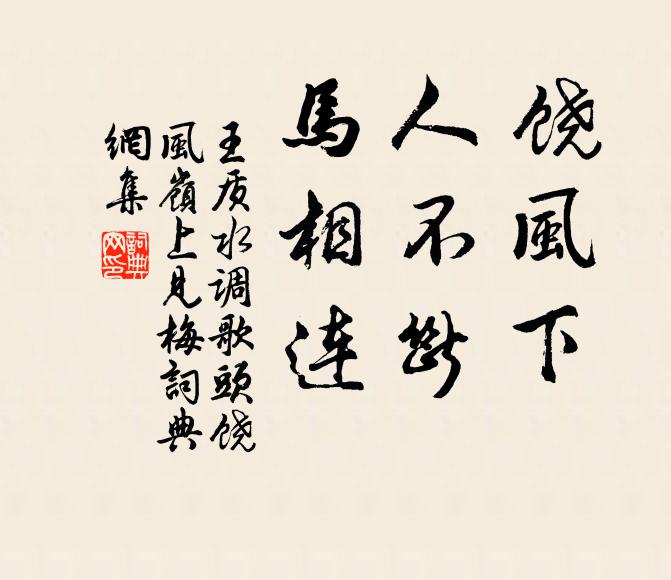 饶風下
人不斷
馬相連
王质水调歌頭饶
風嶺上見梅詞典
網集
詞典網印